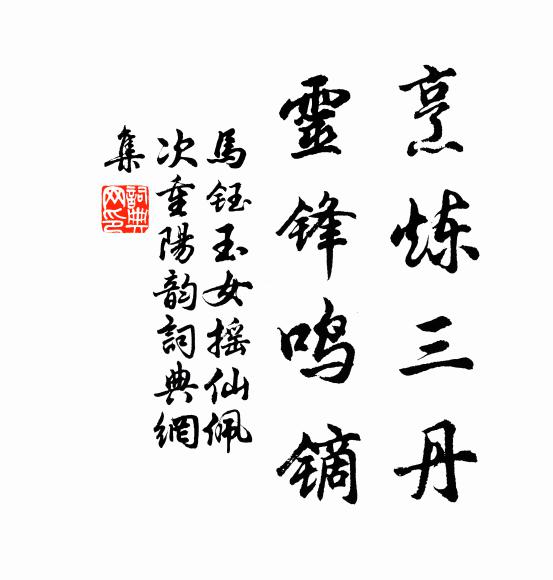 烹炼三丹
靈锋鸣镝
馬钰玉女摇仙佩
次重陽韵詞典網
集
詞典网印